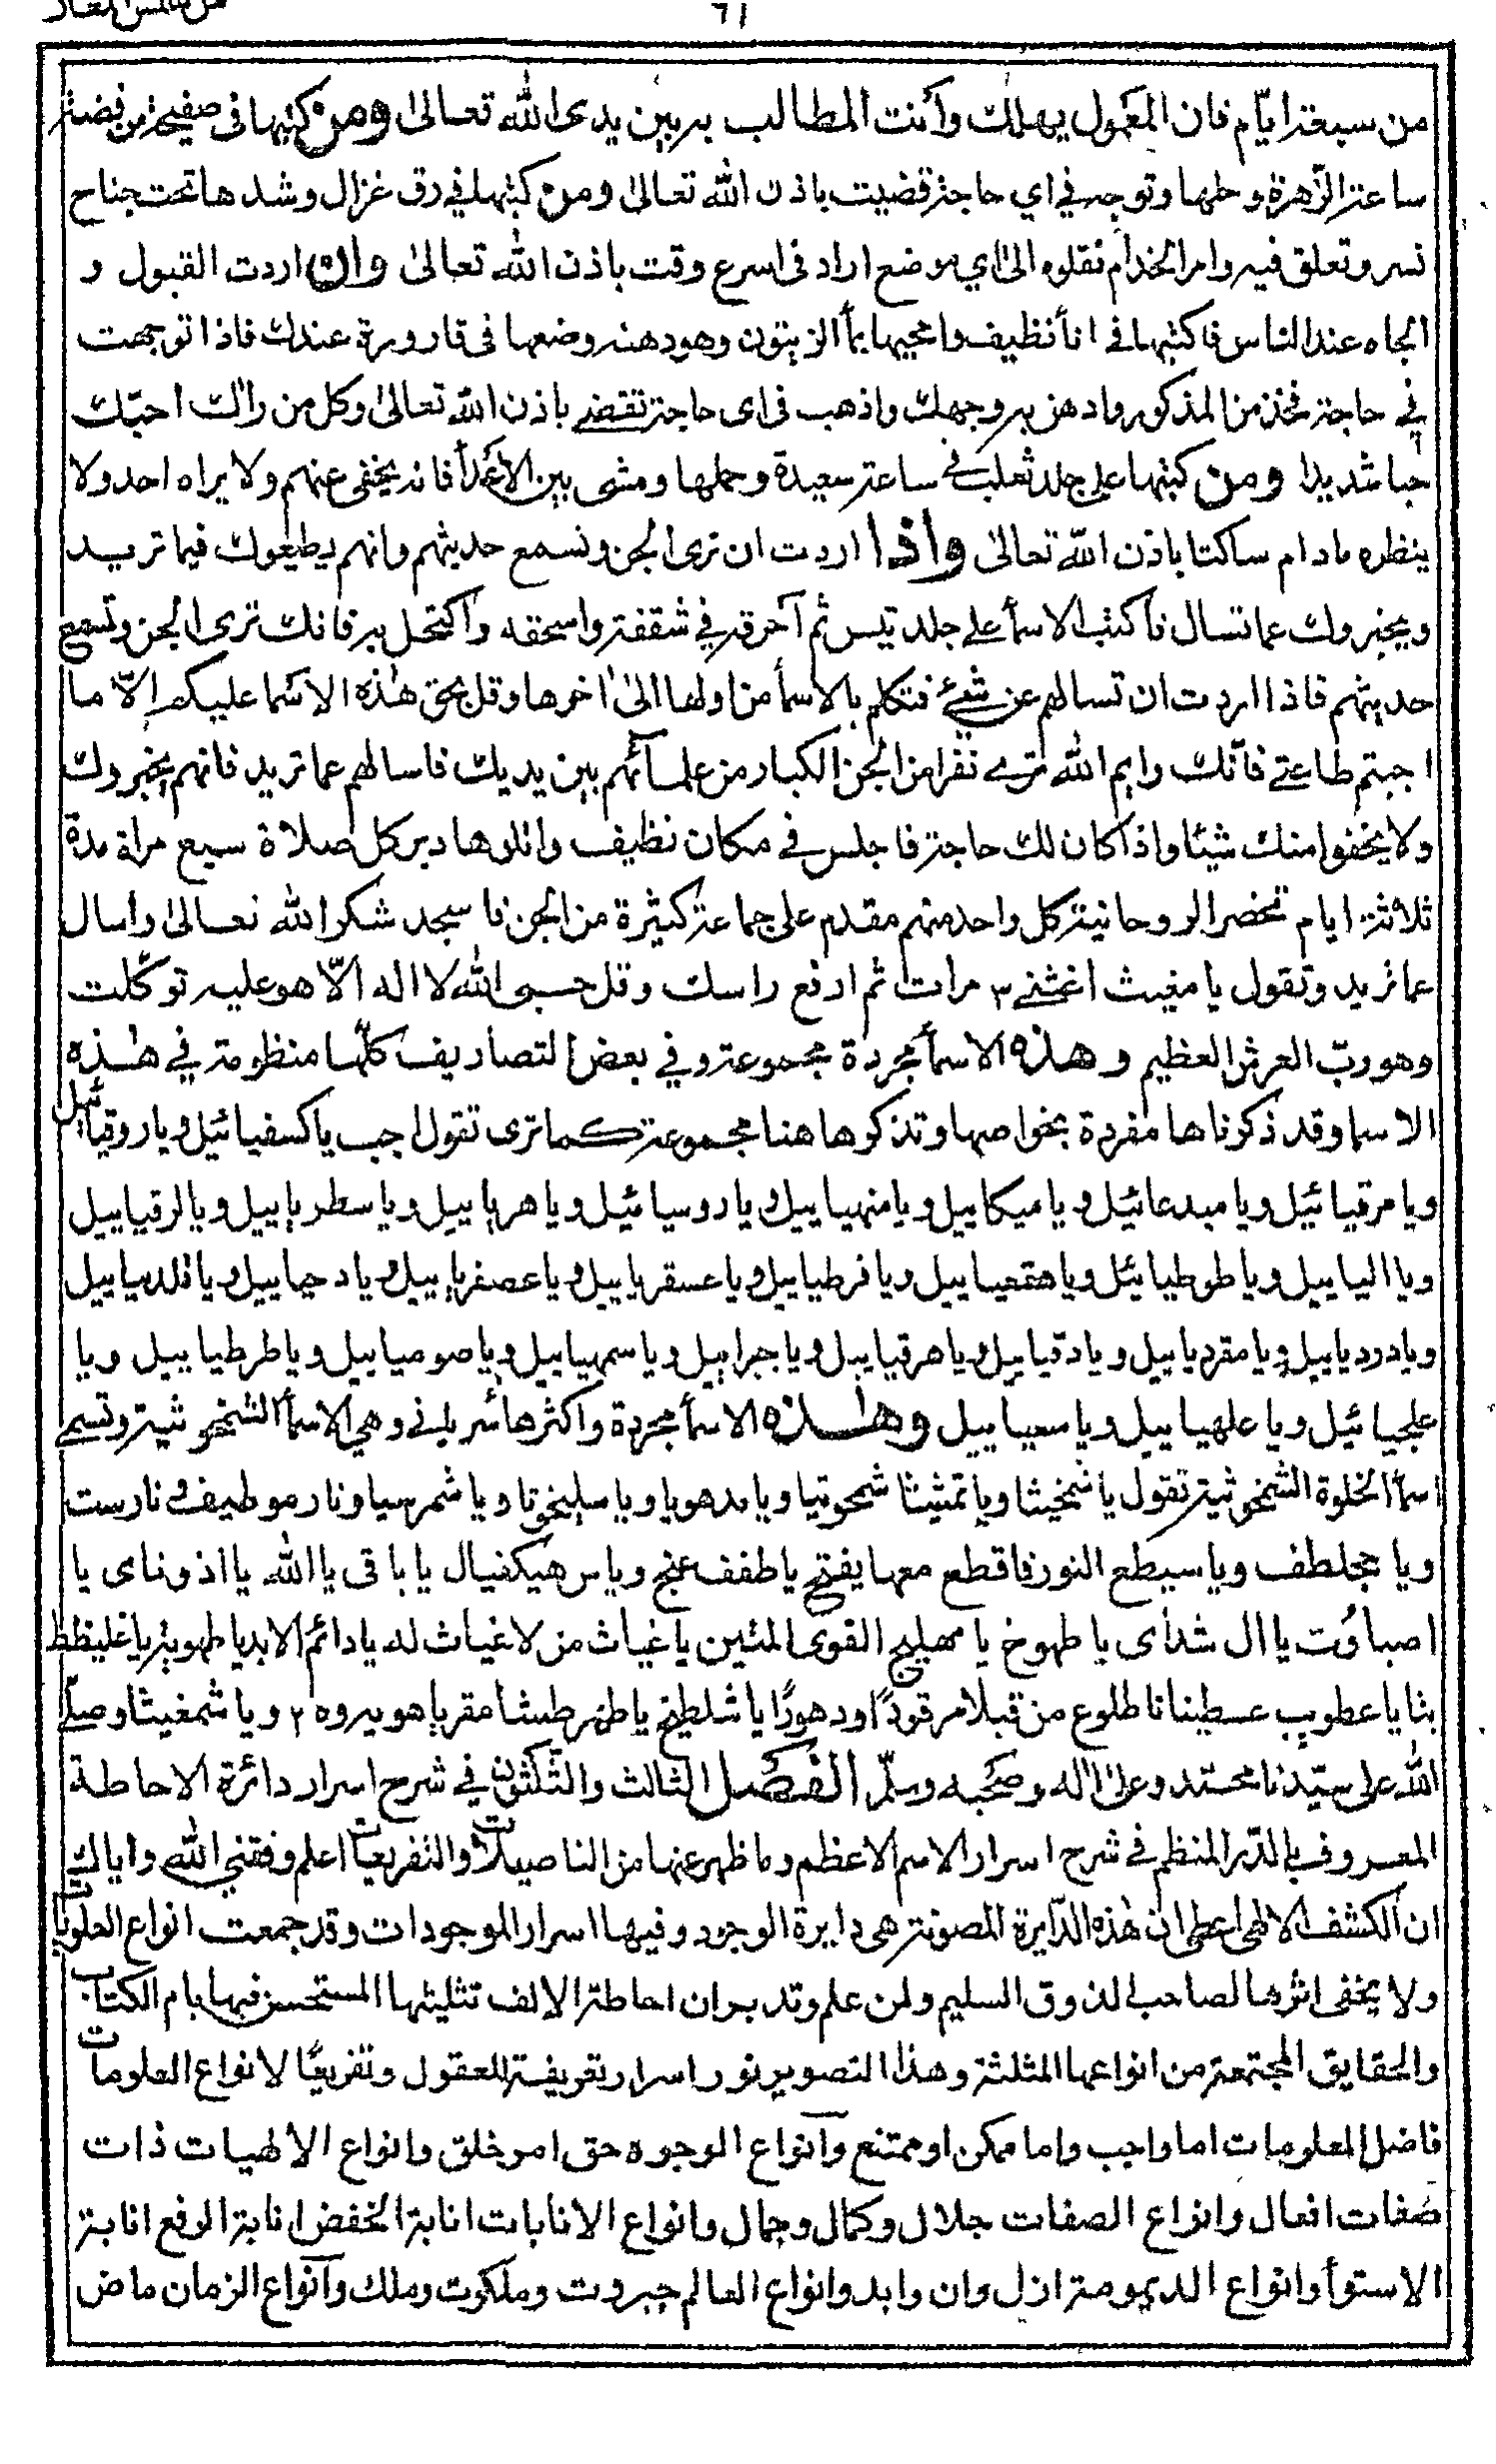 ٦١
من سبعة ايام فان المعمول يهلك وأنت المطالب به بين يدى الله تعالى ومن كتبها فى صفيحة من فضة
ساعة الزهرة وحملها وتوجه في اي حاجة قضيت باذن الله تعالى ومن كتبها في رق غزال وشدها تحت جناح
نسر وتعلق فيه وامر الخدام نقلوه الى اي موضع اراد فى اسرع وقت باذن الله تعالى وان اردت القبول و
الجاه عند الناس فاكتبها في انأ نظيف وامحيها بمأ الزيتون وهو دهنه وضعها فى قارورة عندك فاذا توجهت
في حاجة فخذ من المذكور وادهن به وجهك واذهب فى اى حاجة تقضي باذن الله تعالى وكل من راك احبّك
حبا شديدا ومن كتبها على جلد ثعلب في ساعة سعيدة وحملها ومشى بين الاعدأ فانه يخفى عنهم ولا يراه احد ولا
ينظره مادام ساكتا باذن الله تعالى واذا اردت ان ترى الجن وتسمع حديثهم وانهم يطيعوك فيما تريد
ويخبروك عما تسال فاكتب الاسمأ على جلد تيس ثم آحرقه في شقفة واسحقه واكتحل به فانك ترى الجن وتسمع
حديثهم فاذا اردت ان تسالهم عن شيئ فتكلم بالاسمأ من اولها الى اخرها وقل بحق هذه الاسما عليكم الّا ما
اجبتم طاعتي فانّك وايم الله ترى نفرا من الجن الكبار من علمائهم بين يديك فاسالهم عما تريد فانهم يخبروك
ولا يخفوا منك شيئا واذا كان لك حاجة فاجلس في مكان نظيف واتلوها دبر كل صلاة سبع مراة مدة
ثلاثة ايام تحضر الروحانية كل واحد منهم مقدم على جماعة كثيرة من الجن فاسجد شكرا لله تعالى واسال
عما تريد وتقول يا مغيث اغثني ٣ مرات ثم ارفع راسك وقل حسبى الله لا اله الّا هو عليه توكّلت
وهو ربّ العرش العظيم وهذه الاسمأ مجردة مجموعة وفي بعض التصاريف كلّها منظومة في هذه
الاسما وقد ذكرناها مفردة بخواصها وتذكرها هنا مجموعة كما ترى تقول اجب يا كسفيائيل ويا روقيائيل
ويا مرقيائيل ويا مبدعائيل ويا ميكاييل ويا منهياييل ويا روسيائيل ويا هرياييل ويا سطرياييل ويا لرقياييل
ويا الياييل ويا طوطيائيل ويا هقعياييل ويا فرطياييل ويا عسقرياييل ويا عصفرياييل ويا دحياييل ويا
ويا دردياييل ويا مقردياييل ويا دقياييل ويا هرقياييل ويا جبراييل ويا سمهياييل ويا صوصياييل ويا طرطياييل ويا
علجيائيل ويا علهياييل ويا سعياييل وهذه الاسمأ مجردة واكثرها سرياني وهي الاسمأ الشمخوثية وتسمى
اسمأ الخلوة الشمخوثية تقول يا شمخيثا ويا تمثيثا شمحوتيا ويا بدهويا ويا سليخوتا ويا شمرهيا ونارموطيف ونارست
ويا ججلطف ويا سيطع النور فاقطع معها يفتح يا طفف عنج ويا س هيكفيال يا باقى يا الله يا اذوناى يا
اصباؤت يا ال شداى يا طهوخ يا مهليج القوى المتين يا غياث من لا غياث له يا دائم الابد يا طهوبة يا غليظظ
بثا يا عطوب عسطينانا طلوع من قبلا مرقودًا ودهورًا يا شلطيخ يا طهر طشا مقر ياهو يروه ٢ ويا شمغيثا وصلّى
الله على سيّدنا محمّد وعلى اله وصحبه وسلّم الفصل الثالث والثلثون في شرح اسرار دائرة الاحاطة
المعروف بالدّر المنظم في شرح اسرار الاسم الاعظم وما ظهر عنها من التاصيلات والتفريعات اعلم وفقني الله واياك
ان الكشف الالهى اعطى ان هذه الدّايرة المصونة هى دايرة الوجود وفيها اسرار الموجودات وقد جمعت انواع العلويات
ولا يخفى اثرها لصاحب الذوق السليم ولمن علم وتدبر ان احاطة الالف تثليثها المستحسن فيها بام الكتاب
والحقايق المجتمعة من انواعها المثلثة وهذا التصوير نور اسرار تعريفة للعقول وتفريعًا لانواع العلومات
فاضل المعلومات اما واجب واما ممكن او ممتنع وانواع الوجوه حق امر خلق وانواع الالهيات ذات
صفات افعال وانواع الصفات جلال وكمال وجمال وانواع الانابات انابة الخفض انابة الرفع انابة
الاستوأ وانواع الديمومة ازل وان وابد وانواع العالم جبروت وملكوت وملك وآنواع الزمان ماض